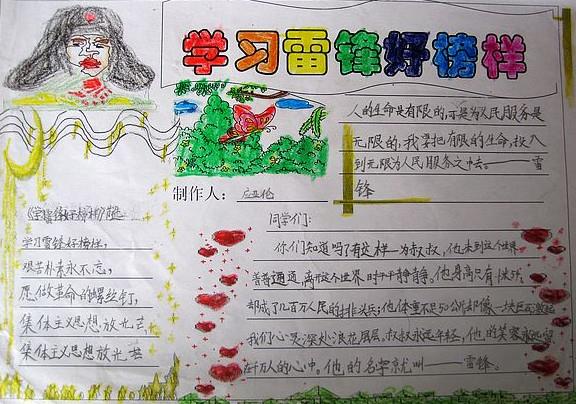 学习雷锋好榜样
人的生命是有限的,可是为人民服务是
无限的,我要把有限的生命,投入
到无限为人民服务之中去。——雷
锋
制作人:
学习雷锋好榜样,
艰苦朴素永不忘,
愿做革命的螺丝钉,
集体主义思想放光芒
集体主义思想放光芒
同学们:
你们知道吗?有这样一为叔叔,他来到这个世界
普普通通,离开这个世界时平平静静。他身高只有
却成了几百万人民的排头兵;他体重不足50公斤却像一块巨
我们心灵深处浪花层层,叔叔永远年轻,他的笑容永远
在千万人的心中。他的名字就叫——雷锋。